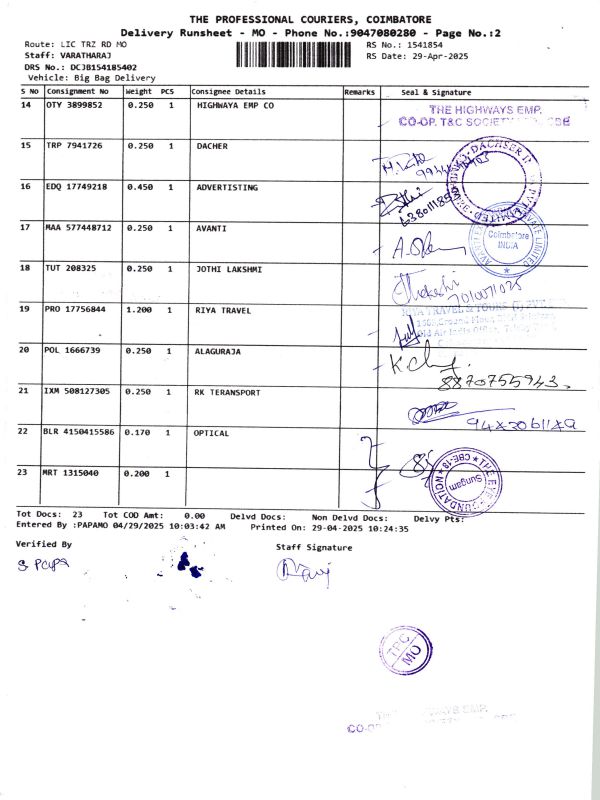 THE PROFESSIONAL COURIERS, COIMBATORE
Delivery Runsheet - MO - Phone No.:9047080280 - Page No.:2
Route: LIC TRZ RD MO RS No.: 1541854
Staff: VARATHARAJ RS Date: 29-Apr-2025
DRS No.: DCJB154185402
Vehicle: Big Bag Delivery
S No Consignment No Weight PCS Consignee Details Remarks Seal & Signature
14 OTY 3899852 0.250 1 HIGHWAYA EMP CO
THE HIGHWAYS EMP.
CO-OP. T&C SOCIETY CBE
15 TRP 7941726 0.250 1 DACHER
DACHSER
LIMITED
16 EDQ 17749218 0.450 1 ADVERTISTING
17 MAA 577448712 0.250 1 AVANTI
AVANTI PRIVATE LIMITED
Coimbatore
INDIA
18 TUT 208325 0.250 1 JOTHI LAKSHMI
19 PRO 17756844 1.200 1 RIYA TRAVEL
RIYA TRAVEL & TOURS
20 POL 1666739 0.250 1 ALAGURAJA
8870755943.
21 IXM 508127305 0.250 1 RK TERANSPORT
22 BLR 4150415586 0.170 1 OPTICAL
THE EYE FOUNDATION
CBE-18
Sungam
23 MRT 1315040 0.200 1
Tot Docs: 23 Tot COD Amt: 0.00 Delvd Docs: Non Delvd Docs: Delvy Pts:
Entered By :PAPAMO 04/29/2025 10:03:42 AM Printed On: 29-04-2025 10:24:35
Verified By Staff Signature
TPC
MO
WAYS EMP.
CO-OP